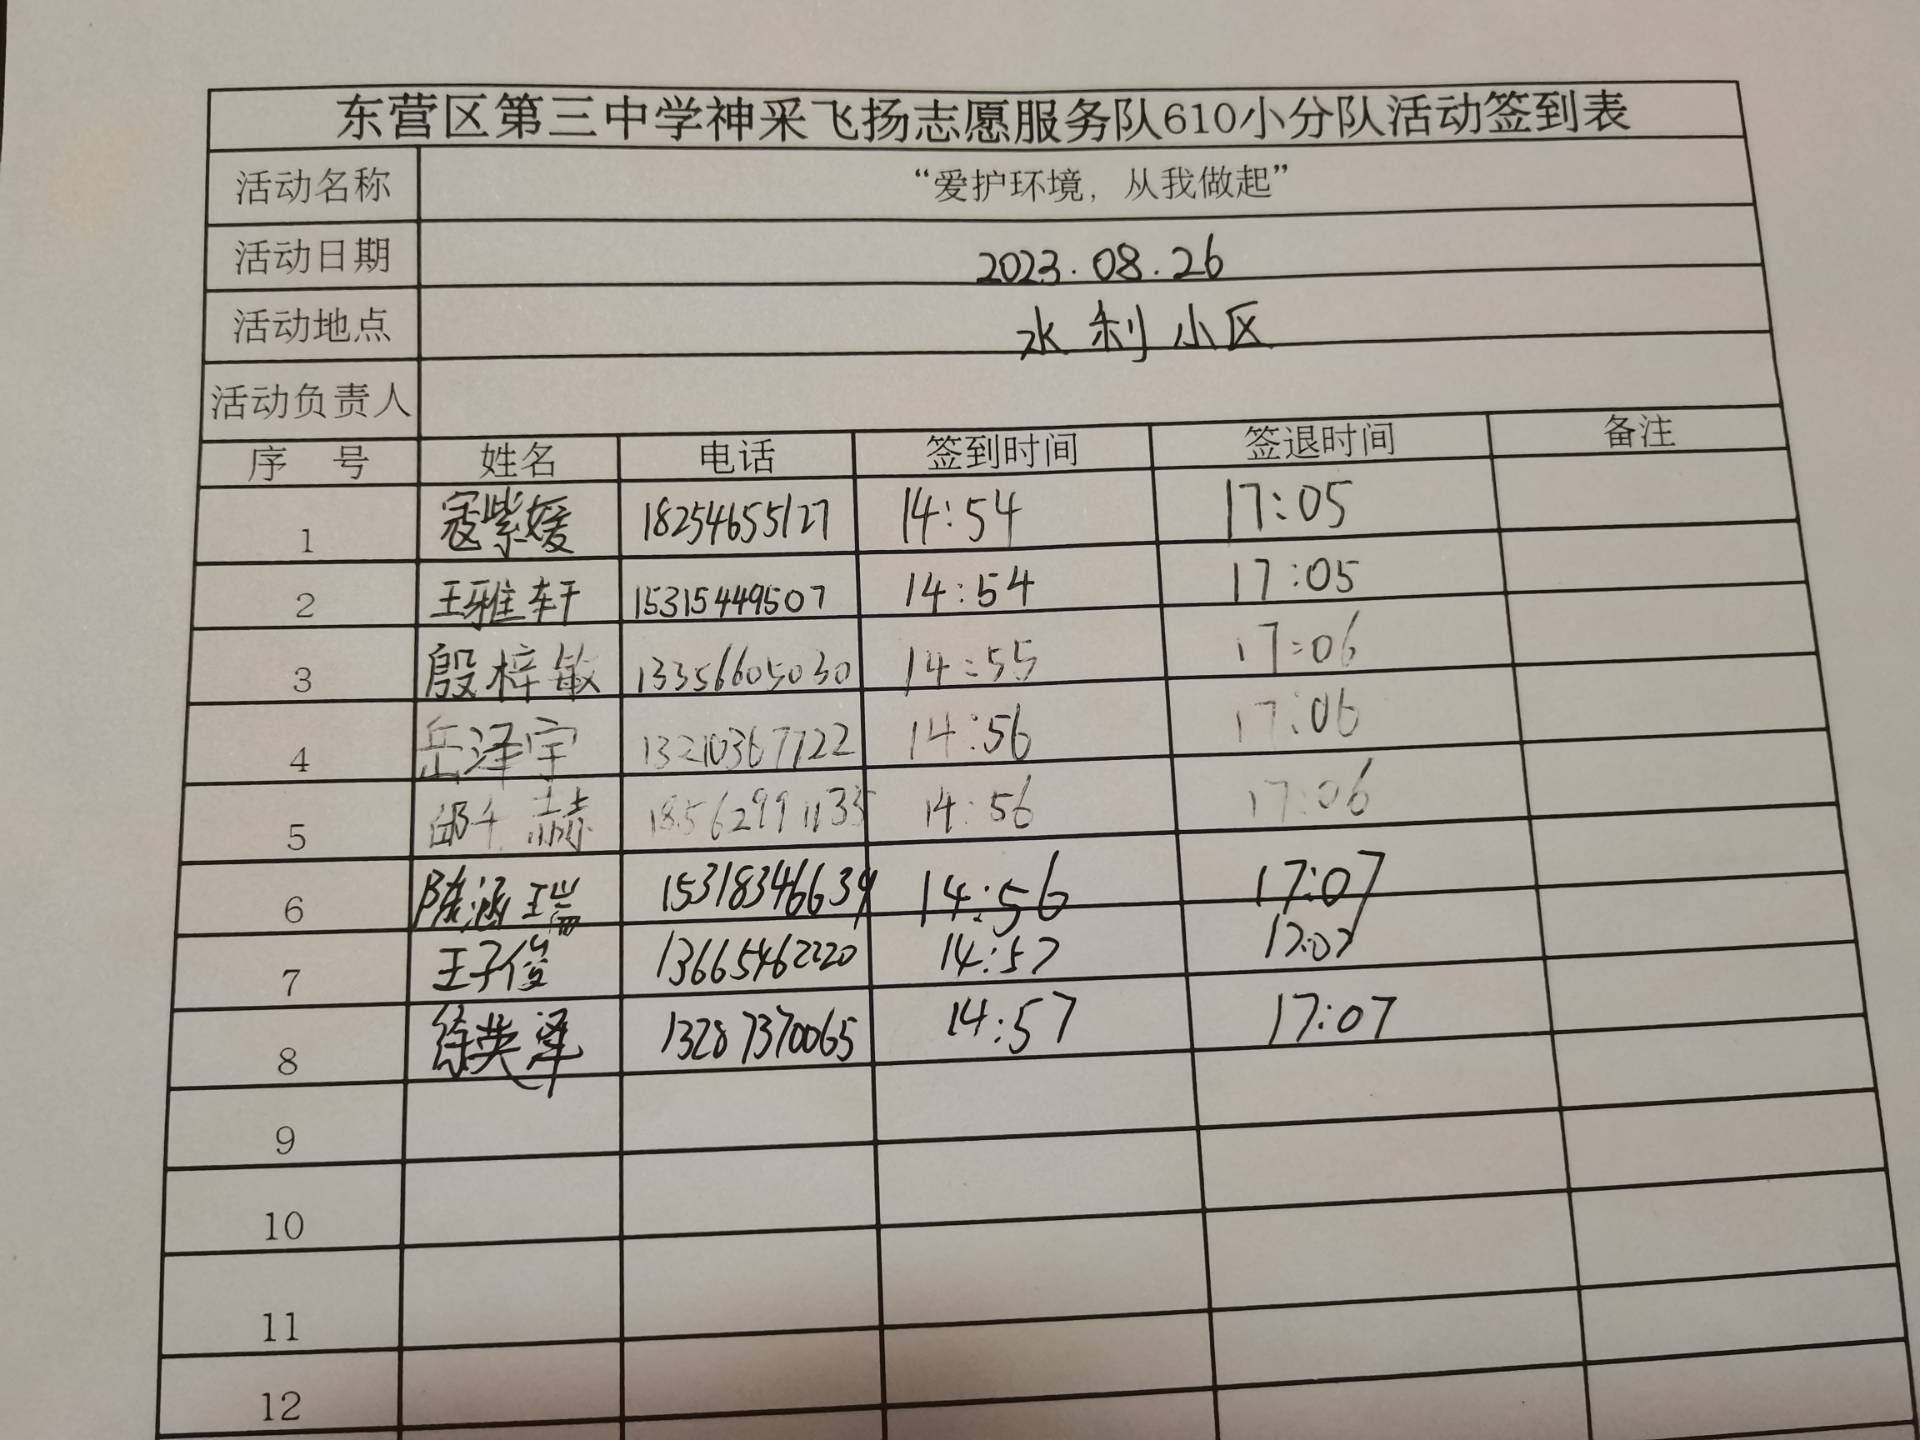 东营区第三中学神采飞扬志愿服务队610小分队活动签到表
活动名称 “爱护环境，从我做起”
活动日期 2023.08.26
活动地点 水利小区
活动负责人
序 号 姓名 电话 签到时间 签退时间 备注
1 寇紫媛 18254655127 14:54 17:05
2 王雅轩 15315449507 14:54 17:05
3 殷梓敏 13356605030 14:55 17:06
4 岳泽宇 13210367722 14:56 17:06
5 邱千赫 18562991135 14:56 17:06
6 陈涵瑞 15318346639 14:56 17:07
7 王子俊 13665462220 14:57 17:07
8 徐英泽 13287370065 14:57 17:07
9
10
11
12